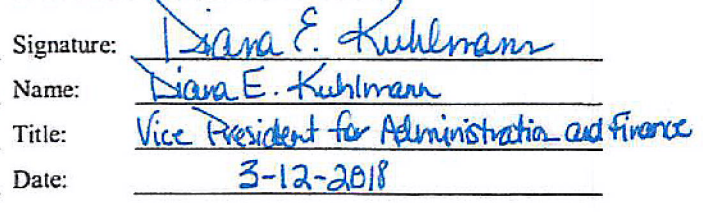 Signature: Diana E. Kuhlmann
Name: Diana E. Kuhlmann
Title: Vice President for Administration and Finance
Date: 3-12-2018